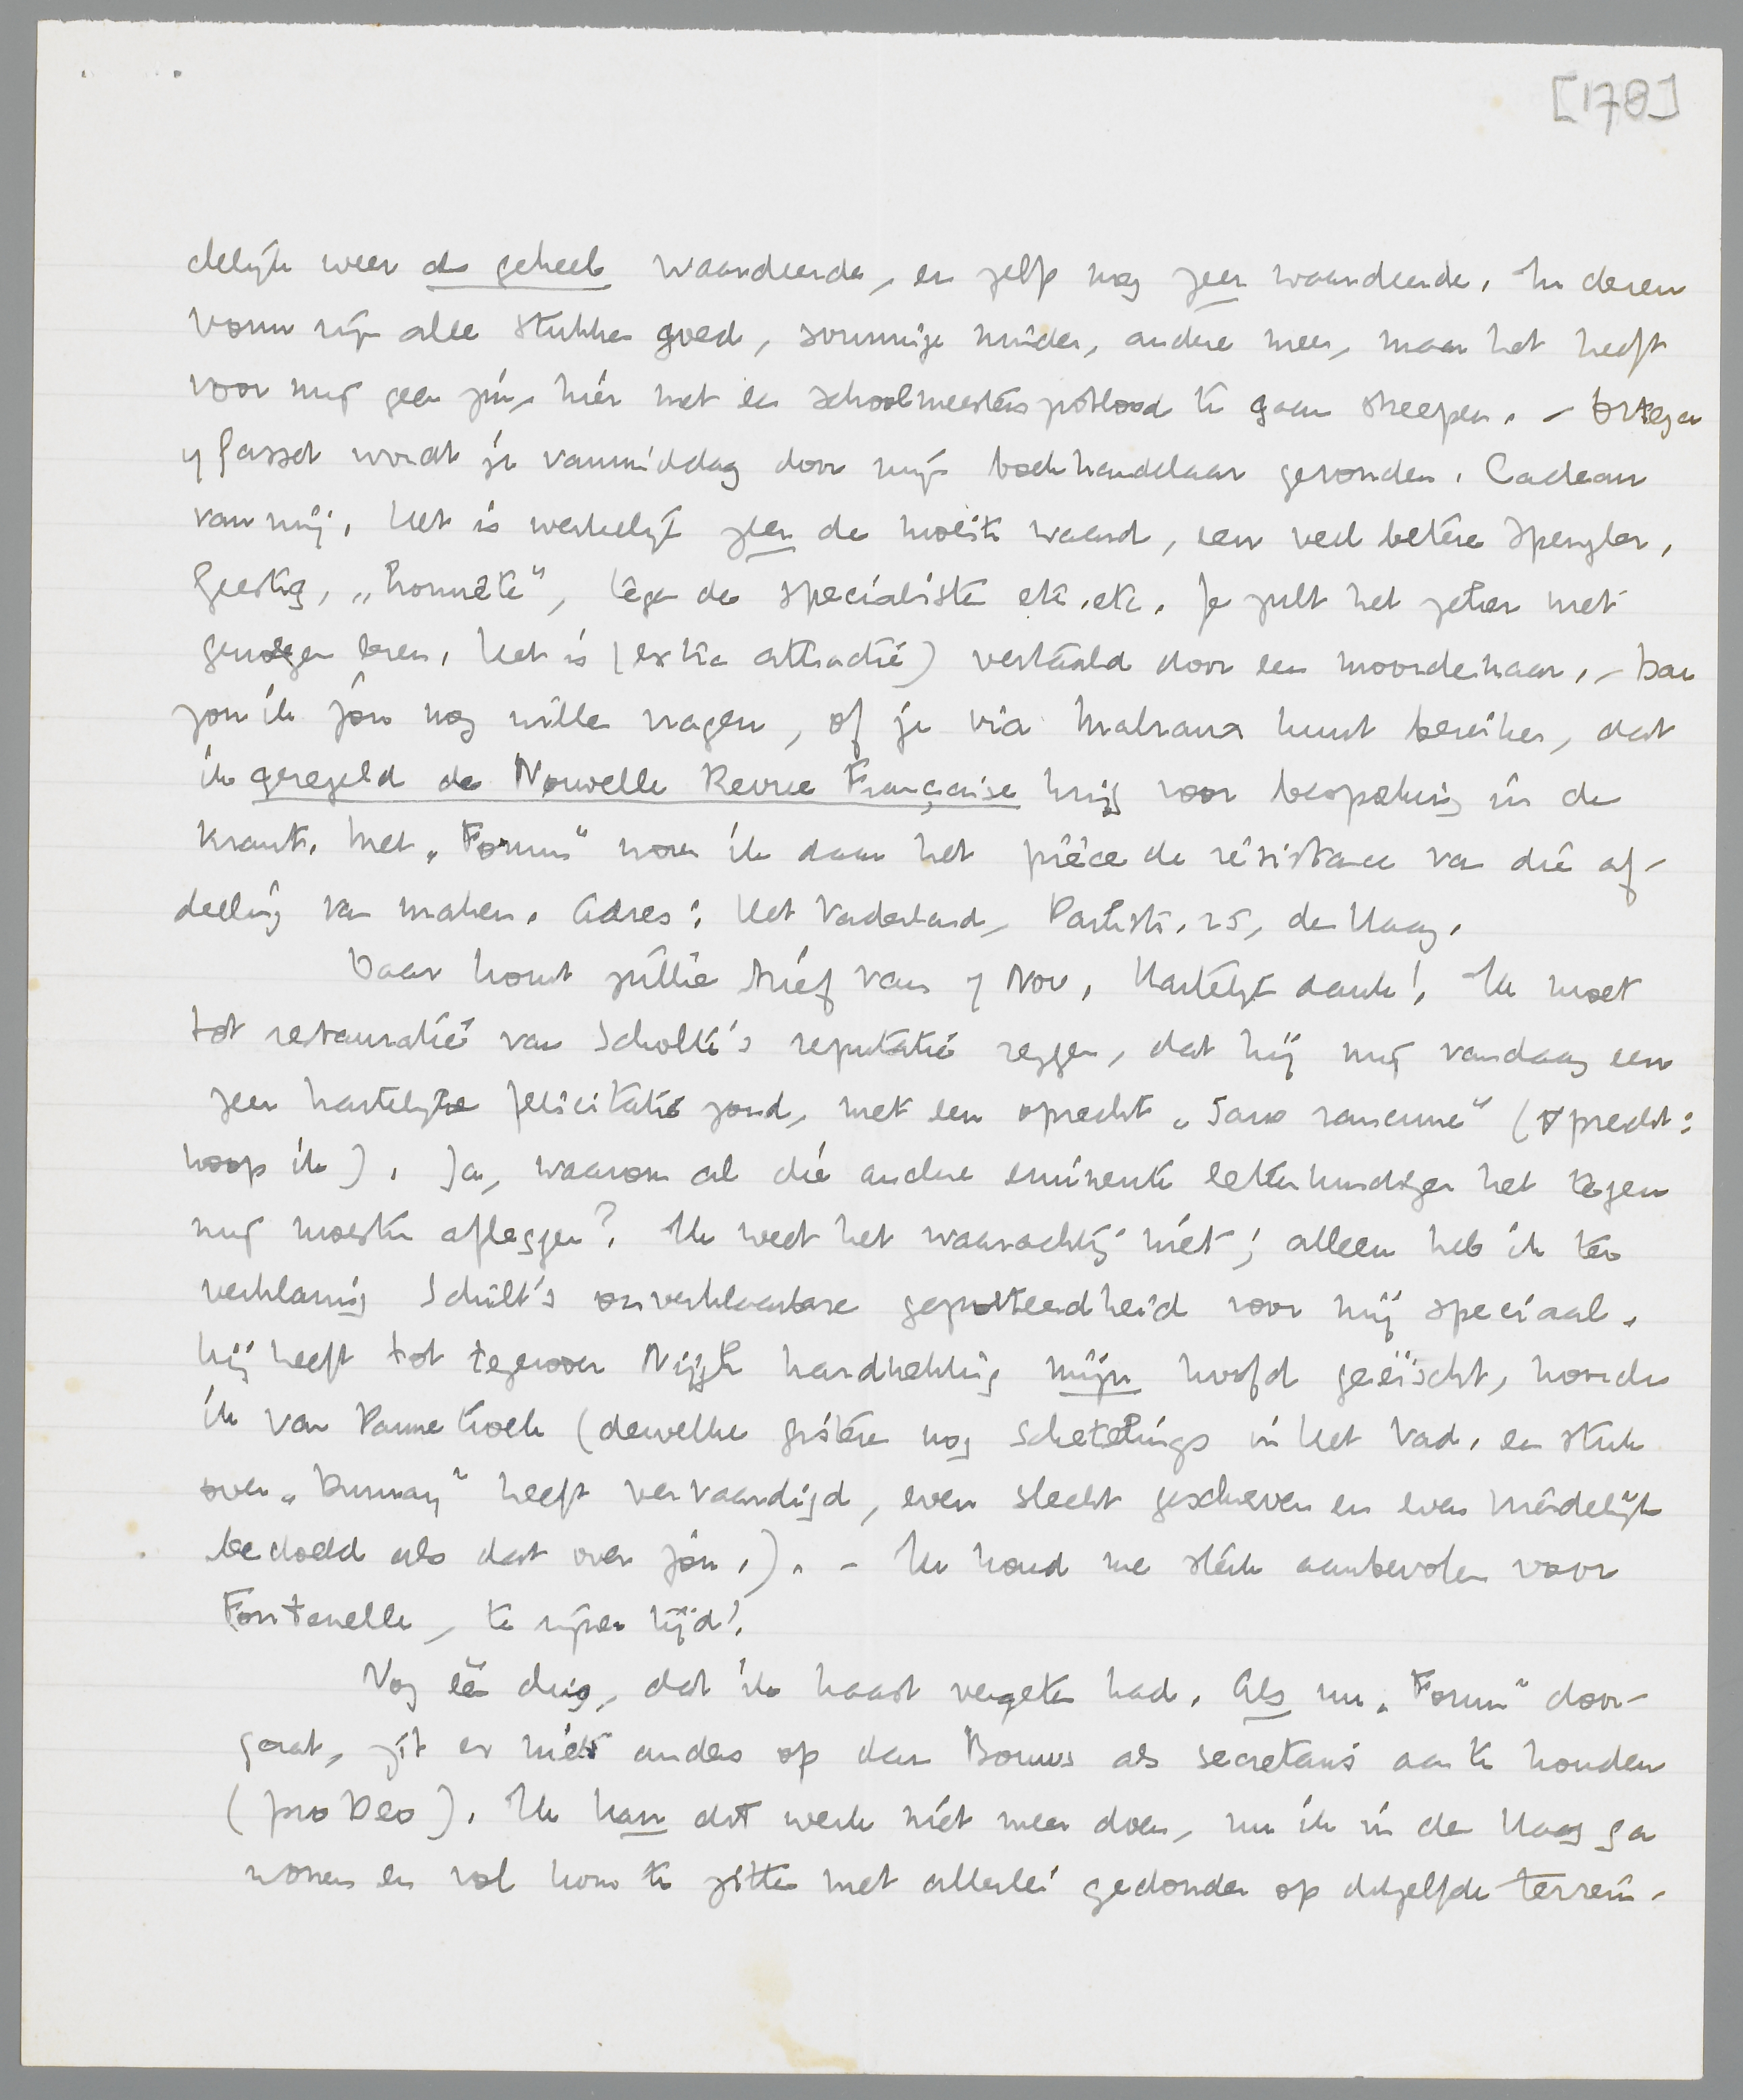 [178]
delijk weer als geheel waardeerde, en zelfs nog zeer waardeerde. In dezen
vorm zijn alle stukken goed, sommige minder, andere meer, maar het heeft
voor mij geen zin, hier met een schoolmeesterspotlood te gaan strepen. – Ortega
y Gasset wordt je vanmiddag door mijn boekhandelaar gezonden. Cadeau
van mij. Het is werkelijk zeer de moeite waard, een veel betere Spengler,
geestig, „honnête”, tegen de specialisten etc. etc. Je zult het zeker met
genoegen lezen. Het is (extra attractie) vertaald door een moordenaar. – Dan
zou ik jou nog willen vragen, of je via Malraux kunt bereiken, dat
ik geregeld de Nouvelle Revue Française krijg voor bespreking in de
krant. Met „Forum” wou ik daar het pièce de résistance van die af-
deeling van maken. Adres: Het Vaderland, Parkstr. 25, den Haag.
Daar komt jullie brief van 7 Nov. Hartelijk dank! Ik moet
tot restauratie van Scholte's reputatie zeggen, dat hij mij vandaag een
zeer hartelijke felicitatie zond, met een oprecht „sans rancune” (oprecht:
hoop ik). Ja, waarom al die andere eminente letterkundigen het tegen
mij moesten afleggen? Ik weet het waarachtig niet; alleen heb ik ter
verklaring Schilt's onverklaarbare geporteerdheid voor mij speciaal.
Hij heeft tot tegenover Nijgh hardnekkig mijn hoofd geëischt, hoorde
ik van Pannekoek (dewelke gisteren nog schetterings in Het Vad. een stuk
over „Dumay” heeft vervaardigd, even slecht geschreven en even vriendelijk
bedoeld als dat over jou.). – Ik houd me sterk aanbevolen voor
Fontenelle, te zijner tijd!
Nog één ding, dat ik haast vergeten had. Als nu „Forum” door-
gaat, zit er niets anders op dan Bouws als secretaris aan te houden
(pro Deo). Ik kan dat werk niet meer doen, nu ik in den Haag ga
wonen en vol kom te zitten met allerlei gedonder op datzelfde terrein.